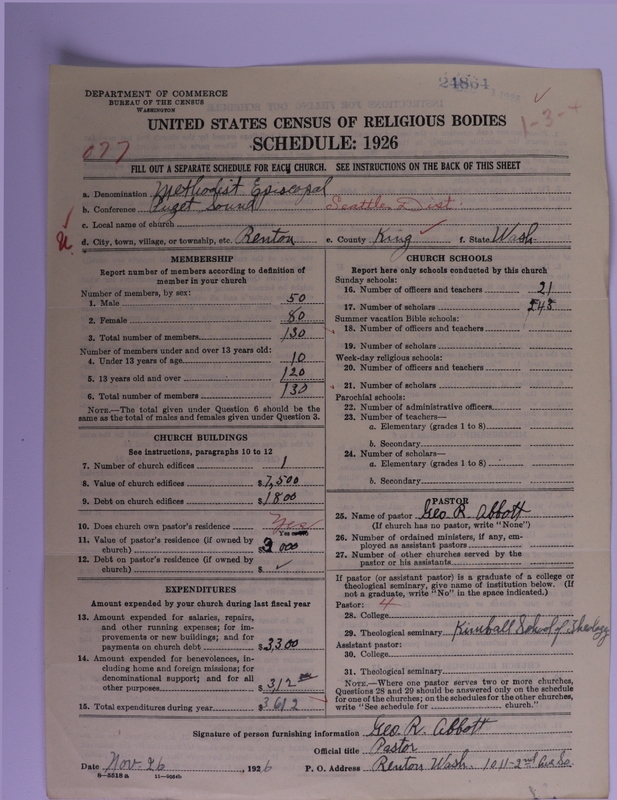 24864
DEPARTMENT OF COMMERCE
BUREAU OF THE CENSUS
WASHINGTON
1-3-4
UNITED STATES CENSUS OF RELIGIOUS BODIES
SCHEDULE: 1926
677
FILL OUT A SEPARATE SCHEDULE FOR EACH CHURCH. SEE INSTRUCTIONS ON THE BACK OF THIS SHEET
a. Denomination Methodist Episcopal
b. Conference Puget Sound Seattle Dist.
c. Local name of church
d. City, town, village, or township, etc. Renton e. County King f. State Wash.
MEMBERSHIP
Report number of members according to definition of member in your church
Number of members, by sex:
1. Male 50
2. Female 80
3. Total number of members 130
Number of members under and over 13 years old:
4. Under 13 years of age 10
5. 13 years old and over 120
6. Total number of members 130
NOTE.—The total given under Question 6 should be the same as the total of males and females given under Question 3.
CHURCH BUILDINGS
See instructions, paragraphs 10 to 12
7. Number of church edifices 1
8. Value of church edifices $7,500
9. Debt on church edifices $1800
10. Does church own pastor's residence Yes
Yes or no
11. Value of pastor's residence (if owned by church) $2000
12. Debt on pastor's residence (if owned by church) $ ✓
EXPENDITURES
Amount expended by your church during last fiscal year
13. Amount expended for salaries, repairs, and other running expenses; for improvements or new buildings; and for payments on church debt $3300
14. Amount expended for benevolences, including home and foreign missions; for denominational support; and for all other purposes $312
15. Total expenditures during year $3612
CHURCH SCHOOLS
Report here only schools conducted by this church
Sunday schools:
16. Number of officers and teachers 21
17. Number of scholars 248
Summer vacation Bible schools:
18. Number of officers and teachers
19. Number of scholars
Week-day religious schools:
20. Number of officers and teachers
21. Number of scholars
Parochial schools:
22. Number of administrative officers
23. Number of teachers—
a. Elementary (grades 1 to 8)
b. Secondary
24. Number of scholars—
a. Elementary (grades 1 to 8)
b. Secondary
PASTOR
25. Name of pastor Geo. R. Abbott
(If church has no pastor, write "None")
26. Number of ordained ministers, if any, employed as assistant pastors
27. Number of other churches served by the pastor or his assistants
If pastor (or assistant pastor) is a graduate of a college or theological seminary, give name of institution below. (If not a graduate, write "No" in the space indicated.)
Pastor: 4
28. College
29. Theological seminary Kimball School of Theology
Assistant pastor:
30. College
31. Theological seminary
NOTE.—Where one pastor serves two or more churches, Questions 28 and 29 should be answered only on the schedule for one of the churches; on the schedules for the other churches, write "See schedule for church."
Signature of person furnishing information Geo. R. Abbott
Official title Pastor
Date Nov. 26, 1926 P. O. Address Renton Wash. 1011-2nd Ave So.
8—5518a